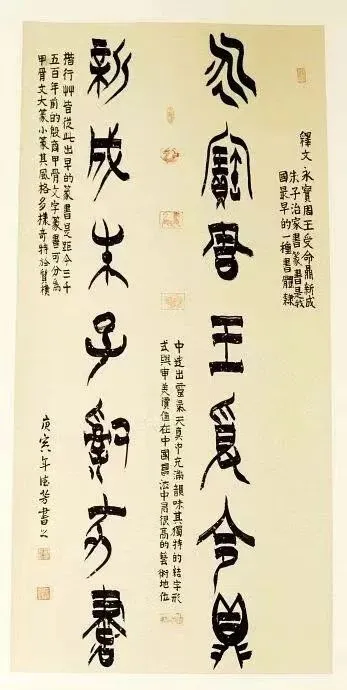 釋文永寶周王受命鼎新成
朱子治家書篆書是我
國最早的一種書體隸
永寶周王受命鼎
新成朱子治家書
楷行艸皆從此出早的篆書是距今三千
五百年前的殷商甲骨文字篆書可分為
甲骨文大篆小篆其風格多樣奇特於質樸
中透出靈氣天真中充滿韻味其獨特的結字形
式與審美價值在中國書法中有很高的藝術地位
庚寅年德芳書之